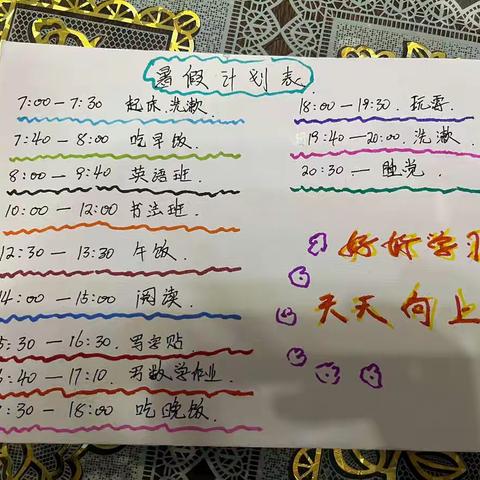 暑假计划表
7:00 — 7:30 起床.洗漱.
7:40 — 8:00 吃早饭.
8:00 — 9:40 英语班.
10:00 — 12:00 书法班.
12:30 — 13:30 午饭.
14:00 — 15:00 阅读.
5:30 — 16:30. 写字贴.
6:40 — 17:10. 写数学作业.
:30 — 18:00 吃晚饭.
18:00 — 19:30. 玩耍.
19:40 — 20:00. 洗漱.
20:30 — 睡觉.
好好学习
天天向上